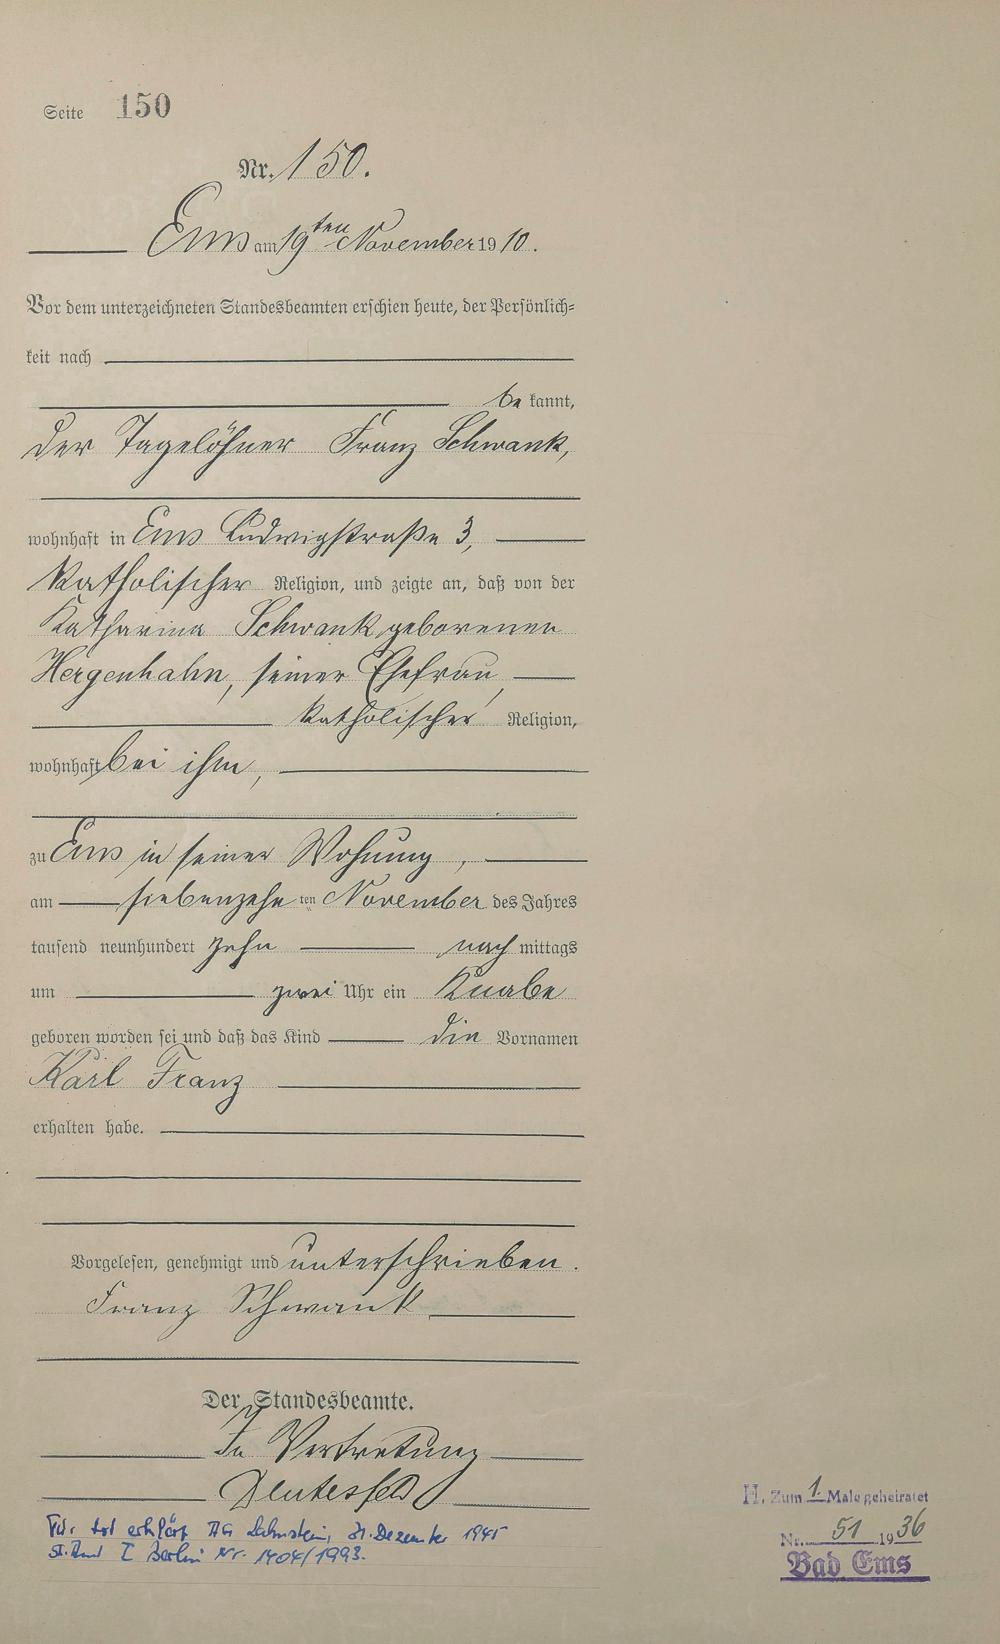 Seite 150
Nr. 150.
Ems am 19ten November 1910.
Vor dem unterzeichneten Standesbeamten erschien heute, der Persönlich-
keit nach
be kannt,
der Tagelöhner Franz Schwank,
wohnhaft in Ems Ludwigstraße 3,
katholischer Religion, und zeigte an, daß von der
Katharina Schwank geborenen
Hergenhahn, seiner Ehefrau,
katholischer Religion,
wohnhaft bei ihm,
zu Ems in seiner Wohnung,
am siebenzehn ten November des Jahres
tausend neunhundert zehn nach mittags
um zwei Uhr ein Knabe
geboren worden sei und daß das Kind die Vornamen
Karl Franz
erhalten habe.
Vorgelesen, genehmigt und unterschrieben.
Franz Schwank
Der Standesbeamte.
In Vertretung
Für tot erklärt AG Lahnstein, 31. Dezember 1945
St. Amt I Berlin Nr. 1404/1993.
H. Zum 1. Male geheiratet
Nr. 51 1936
Bad Ems